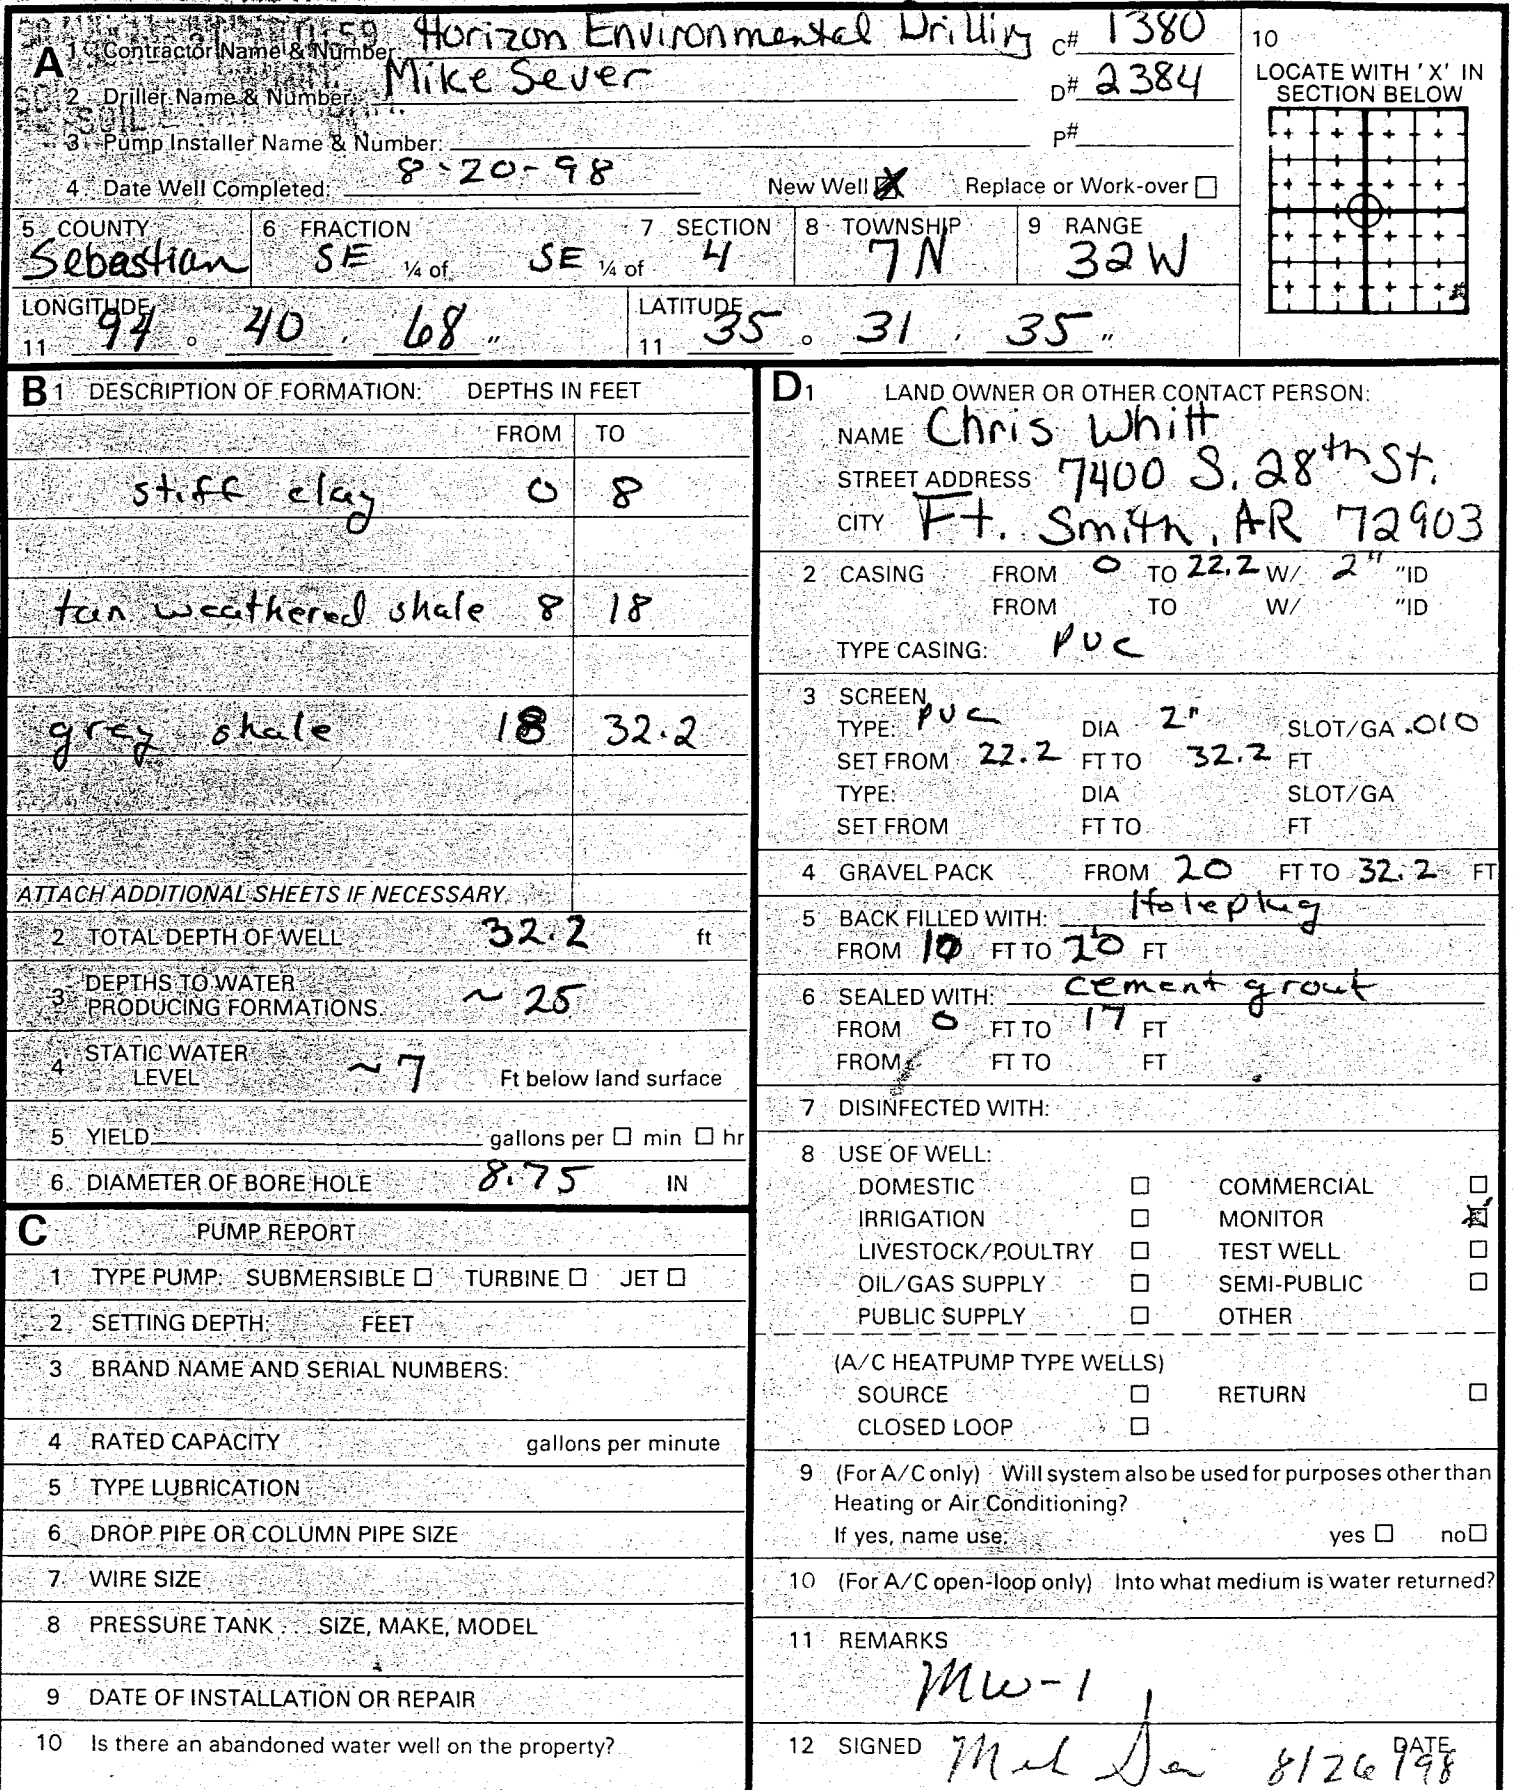 A 1 Contractor Name & Number Horizon Environmental Drilling C# 1380
2 Driller Name & Number: Mike Sever D# 2384
3 Pump Installer Name & Number: P#
4 Date Well Completed: 8-20-98 New Well Replace or Work-over
10
LOCATE WITH 'X' IN
SECTION BELOW
5 COUNTY 6 FRACTION 7 SECTION 8 TOWNSHIP 9 RANGE
Sebastian SE ¼ of SE ¼ of 4 7N 32W
LONGITUDE LATITUDE
11 94 ° 40 ' 68 " 11 35 ° 31 ' 35 "
B 1 DESCRIPTION OF FORMATION: DEPTHS IN FEET
FROM TO
stiff clay 0 8
tan weathered shale 8 18
gray shale 18 32.2
ATTACH ADDITIONAL SHEETS IF NECESSARY.
2 TOTAL DEPTH OF WELL 32.2 ft
3 DEPTHS TO WATER
PRODUCING FORMATIONS. ~ 25
4 STATIC WATER
LEVEL ~ 7 Ft below land surface
5 YIELD gallons per min hr
6 DIAMETER OF BORE HOLE 8.75 IN
C PUMP REPORT
1 TYPE PUMP: SUBMERSIBLE TURBINE JET
2 SETTING DEPTH: FEET
3 BRAND NAME AND SERIAL NUMBERS:
4 RATED CAPACITY gallons per minute
5 TYPE LUBRICATION
6 DROP PIPE OR COLUMN PIPE SIZE
7 WIRE SIZE
8 PRESSURE TANK . . . SIZE, MAKE, MODEL
9 DATE OF INSTALLATION OR REPAIR
10 Is there an abandoned water well on the property?
D 1 LAND OWNER OR OTHER CONTACT PERSON:
NAME Chris Whitt
STREET ADDRESS 7400 S. 28th St.
CITY Ft. Smith, AR 72903
2 CASING FROM 0 TO 22.2 W/ 2" "ID
FROM TO W/ "ID
TYPE CASING: PVC
3 SCREEN
TYPE: PVC DIA 2" SLOT/GA .010
SET FROM 22.2 FT TO 32.2 FT
TYPE: DIA SLOT/GA
SET FROM FT TO FT
4 GRAVEL PACK FROM 20 FT TO 32.2 FT
5 BACK FILLED WITH: Holeplug
FROM 10 FT TO 20 FT
6 SEALED WITH: cement grout
FROM 0 FT TO 17 FT
FROM FT TO FT
7 DISINFECTED WITH:
8 USE OF WELL:
DOMESTIC COMMERCIAL
IRRIGATION MONITOR
LIVESTOCK/POULTRY TEST WELL
OIL/GAS SUPPLY SEMI-PUBLIC
PUBLIC SUPPLY OTHER
(A/C HEATPUMP TYPE WELLS)
SOURCE RETURN
CLOSED LOOP
9 (For A/C only) Will system also be used for purposes other than
Heating or Air Conditioning?
If yes, name use. yes no
10 (For A/C open-loop only) Into what medium is water returned?
11 REMARKS
MW-1
12 SIGNED DATE
8/26/98